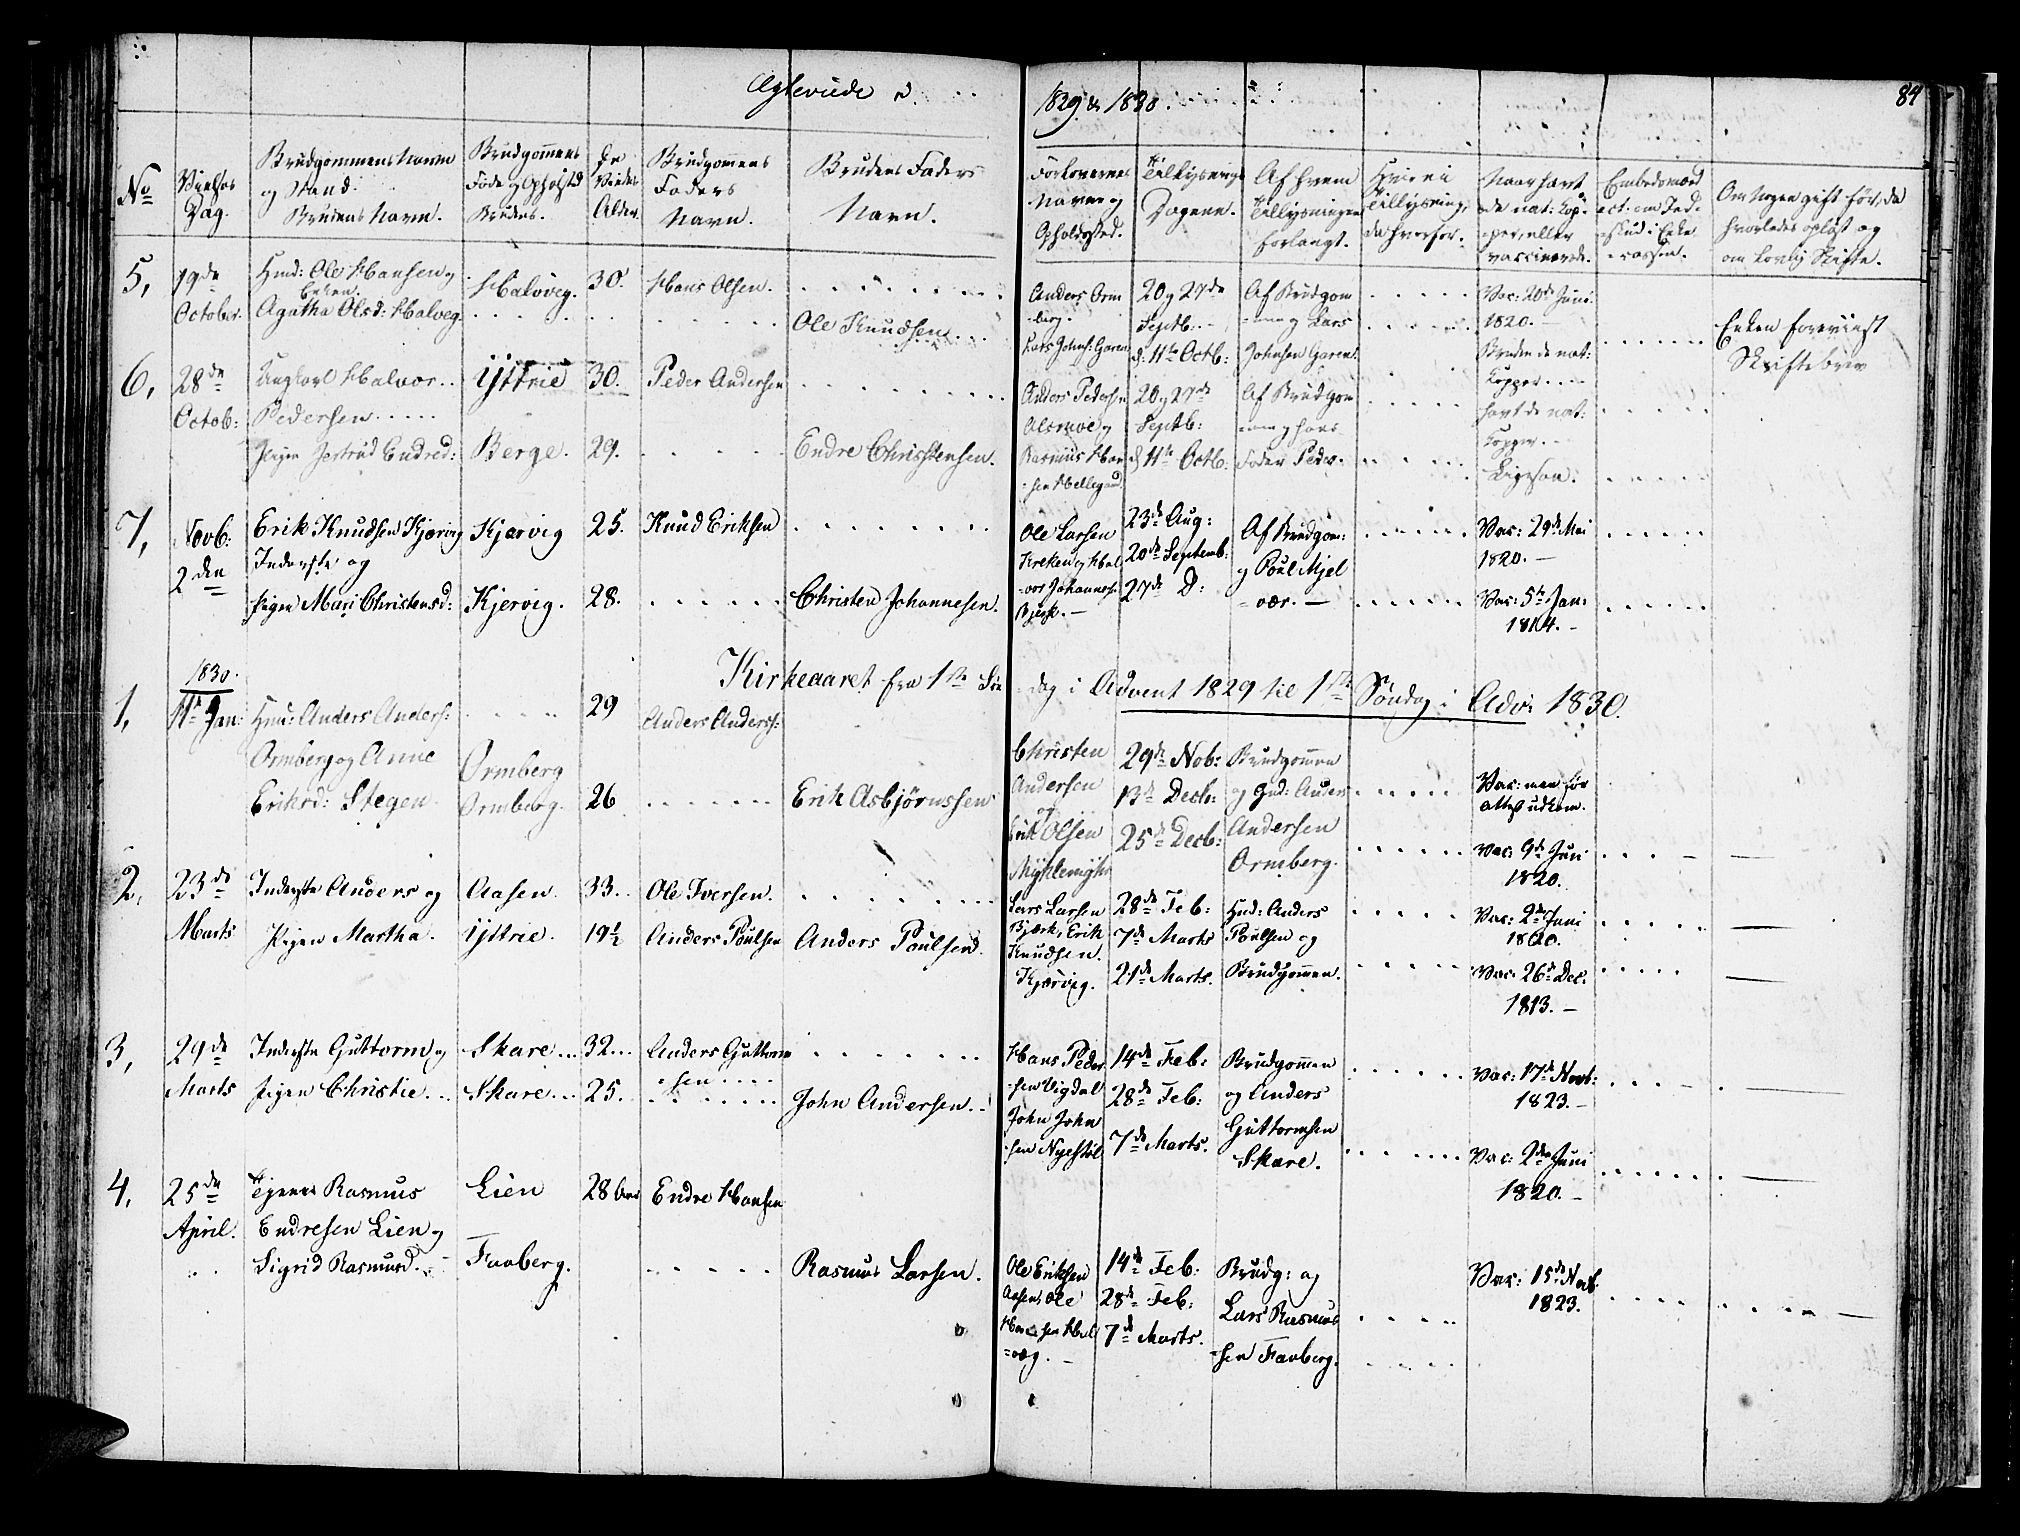 Ægteviede
1829 & 1830.
84
No
Vielses Dag.
Brudgommens Navn og Stand. Brudens Navn.
Brudgommens Føde og Opholsted Brudens.
De Viedes Alder.
Brudgommens Faders Navn.
Brudens Faders Navn.
Forlovernes Navne og Opholdssted.
Tillysnings Dagene.
Af hvem Tillysningen forlangt.
Naar havt de nat: Kopper, eller vaccinerede.
Om nogen gift før, da hvorledes opløst og om lovlig Skifte.
5, 19de October.
Hmd: Ole Hansen og
Enken
Agatha Olsd: Halveg
Halvveg.
30.
Hans Olsen.
Ole Knudsen
Anders Ormberg.
Lars Johns: Garen
20 og 27de Septb:
d: 11te Octb:
Af Brudgommen og Lars Johnsen Garen.
Vac: 20de Juni 1820.
Bruden de nat: Kopper
Enken foreviist Skiftebrev
6, 28de Octob:
Ungkarl Halvor Pedersen
Pigen Jertrud Endred:
Yttrie
Berge.
30.
29.
Peder Andersen
Endre Christensen.
Anders Pedersen
og Rasmus Hansen Hellegaard
20 og 27de Septb:
d 11te Octb:
Af Brudgommen og hans Fader Peder
havt de nat: Kopper.
Ligesaa.
7, Novb: 2den
Erik Knudsen Kjærvig
Inderste og
Pigen Mari Christensd:
Kjærvig
Kjervig.
25.
28.
Knud Eriksen
Christen Johannesen.
Ole Larsen
Kreken og Halvor Johannes: Bjerk.
23de Aug:
20de Septemb.
27de D:
Af Brudgom: og Poul Mjelvær.
Vac: 29de Mai 1820.
Vac: 5te Jan: 1814.
Kirkeaaret fra 1ste Søndag i Advent 1829 til 1ste Søndag i Adv: 1830.
1830.
1, 11te Jan:
Hmd: Anders Anders: Ormberg og Anne Eriksd: Stegen
Ormberg
Ormberg.
29
26
Anders Anderss:
Erik Asbjørnssen
Christen Andersen
og
Erik Olsen Myklemyhr
29de Nob:
13de Decb:
25de Decb:
Brudgommen og Gmd: Anders Andersen Ormberg.
Vac: men før attest udkom.
Vac: 9de Juni 1820.
2, 23de Marts
Inderste Anders og
Pigen Martha.
Aasen.
Yttrie.
33.
19½
Ole Iversen.
Anders Poulsen
Anders Poulsen.
Lars Larsen Bjerk, Erik Knudsen. Kjærvig.
28de Feb:
7de Marts
21de Marts.
Hmd: Anders Poulsen og Brudgommen.
Vac: 2de Juni 1820.
Vac: 26de Dec: 1813.
3, 29de Marts
Inderste Guttorm og
Pigen Christie.
Skare
Skare
32
25.
Anders Guttormsen
John Andersen.
Hans Pedersen Vigdal
John Johnsen Nyestøl
14de Feb:
28de Feb:
7de Marts.
Brudgommen og Anders Guttormsen Skare.
Vac: 17de Novb: 1823.
Vac: 2de Juni 1820.
4, 25de April.
Tjener Rasmus Endresen Lien og
Sigrid Rasmusd.
Lien
Faaberg.
28 Aar
Endre Hansen
Rasmus Larsen.
Ole Eriksen Aasen, Ole Hansen Halveg.
14de Feb:
28de Feb:
7de Marts.
Brudg: og Lars Rasmussen Faaberg.
Vac: 15de Nob. 1823.